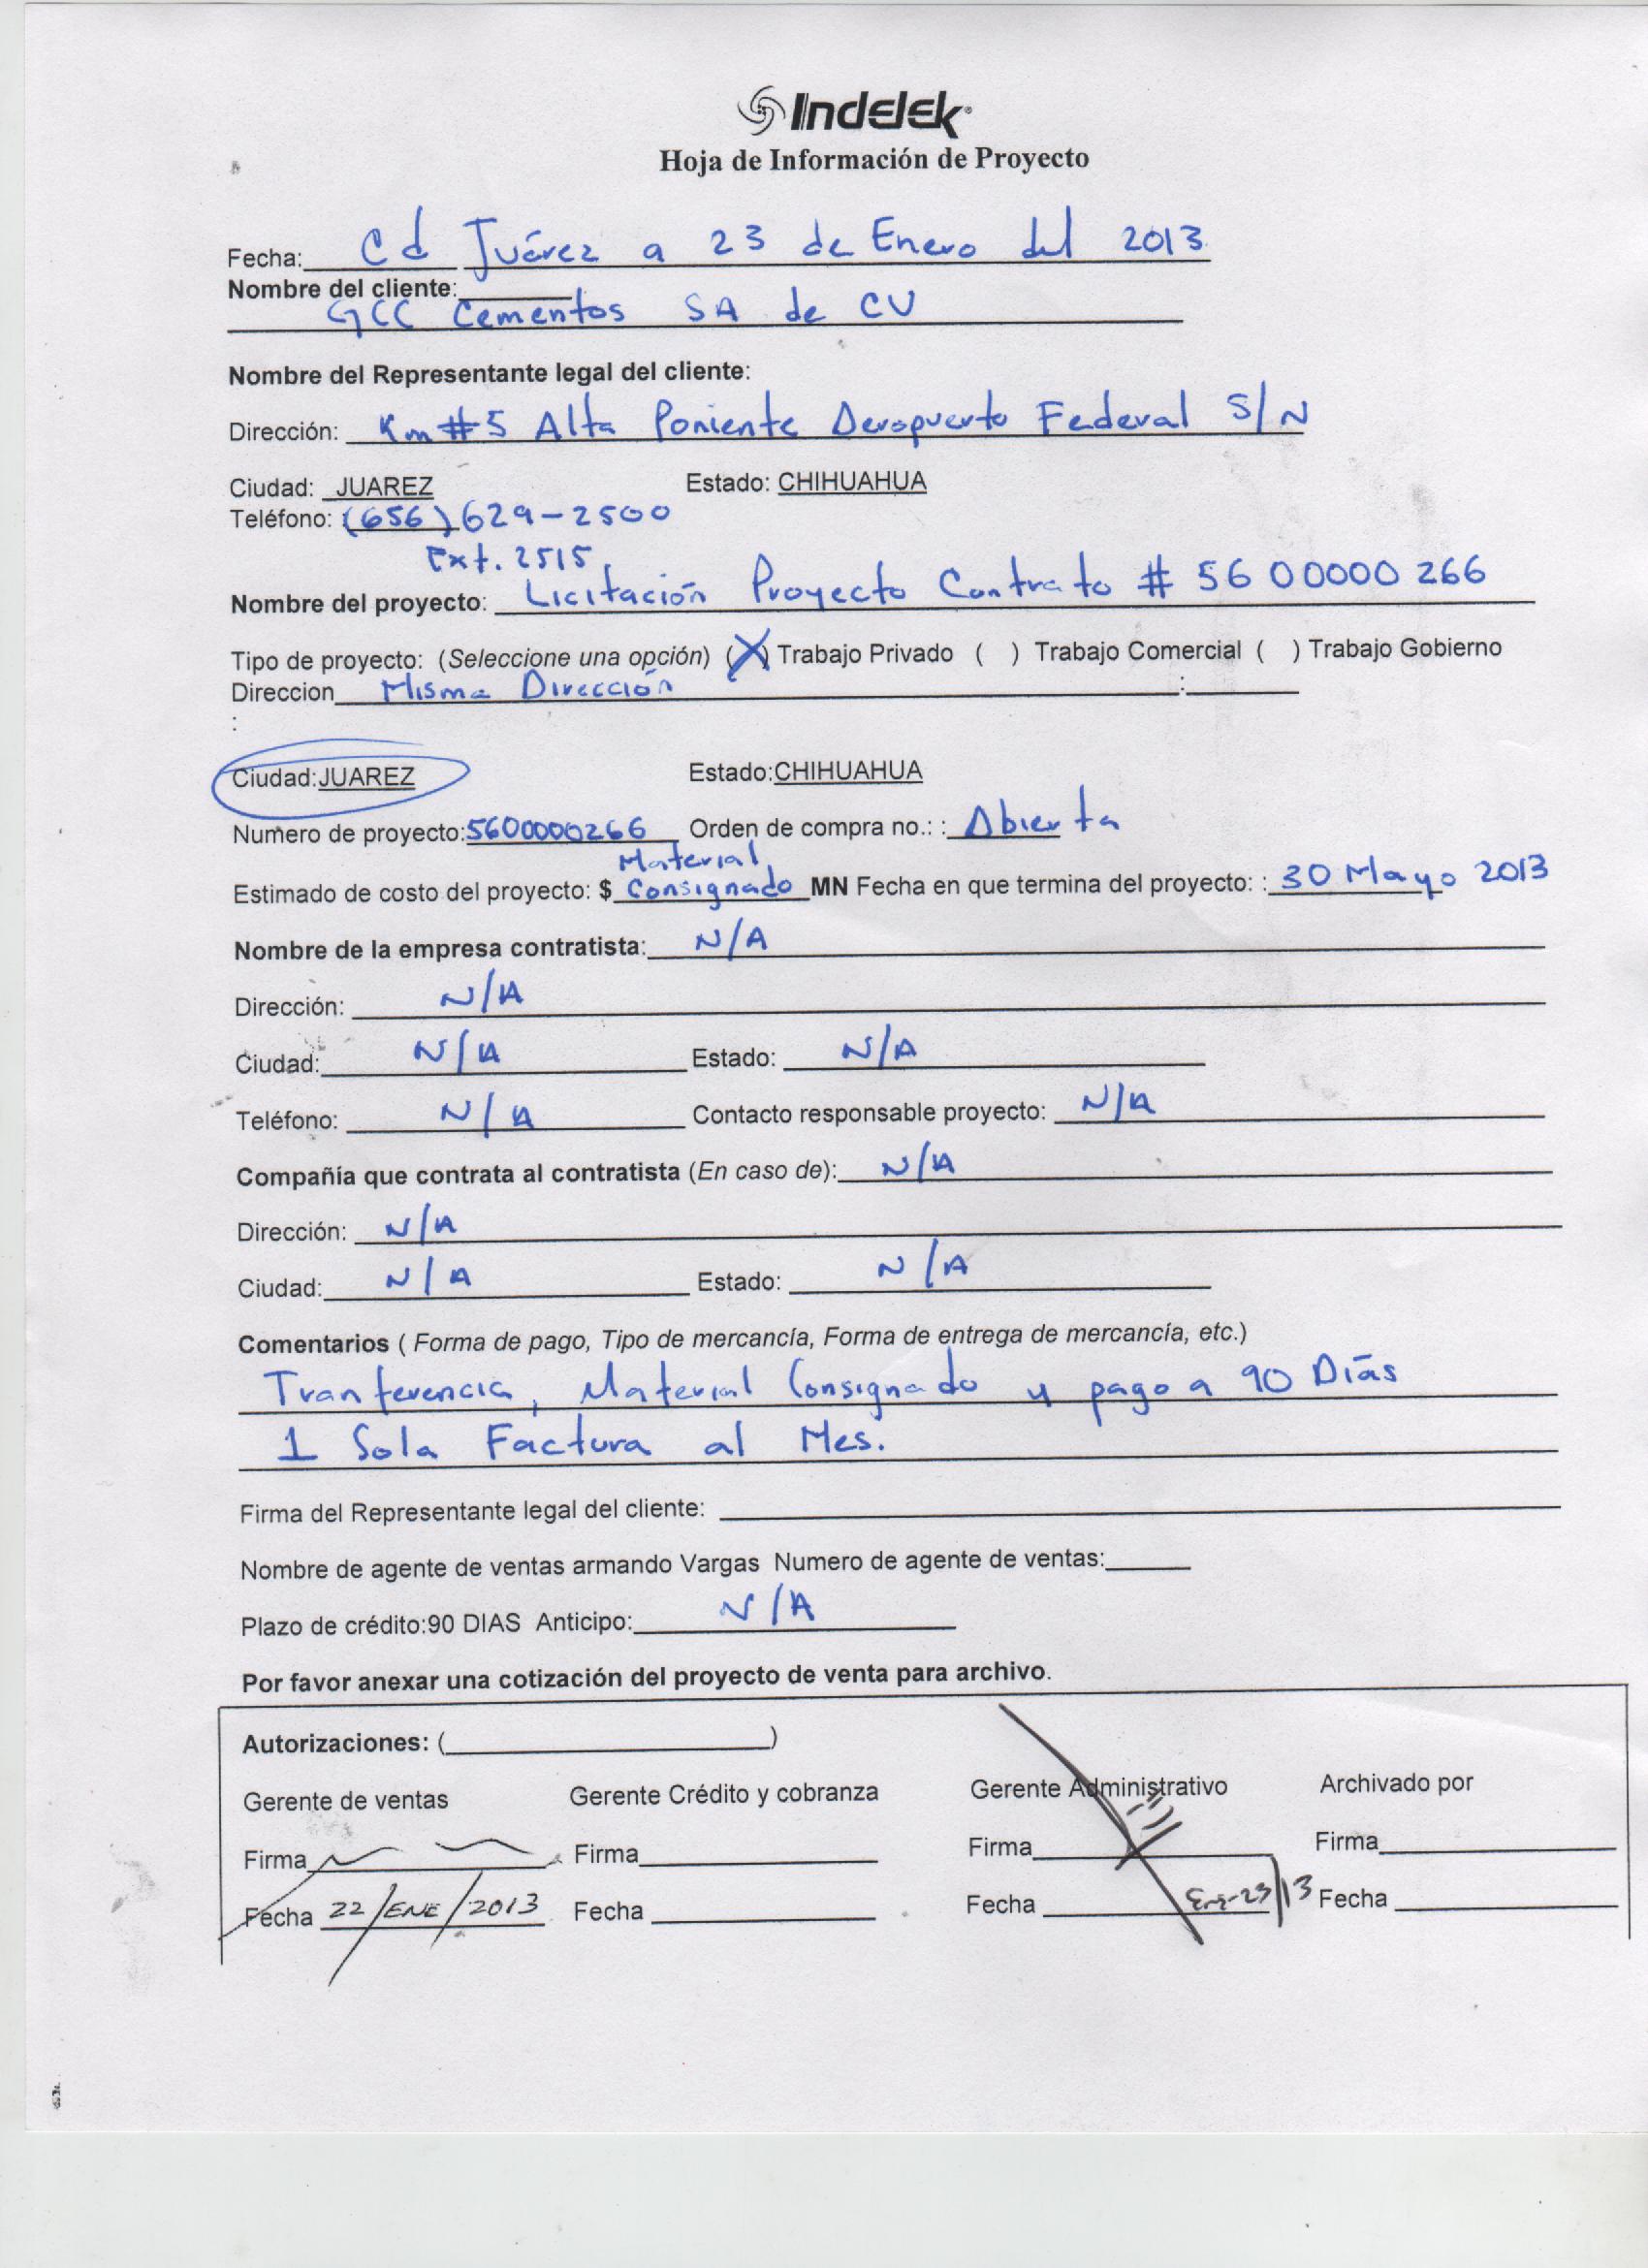 Indelek
Hoja de Información de Proyecto
Fecha: Cd Juárez a 23 de Enero del 2013
Nombre del cliente:
GCC Cementos SA de CV
Nombre del Representante legal del cliente:
Dirección: Km #5 Alta Poniente Aeropuerto Federal S/N
Ciudad: JUAREZ Estado: CHIHUAHUA
Teléfono: (656) 629-2500
Ext. 2515
Nombre del proyecto: Licitación Proyecto Contrato # 5600000266
Tipo de proyecto: (Seleccione una opción) (X) Trabajo Privado ( ) Trabajo Comercial ( ) Trabajo Gobierno
Direccion Misma Dirección :
:
Ciudad:JUAREZ Estado:CHIHUAHUA
Numero de proyecto:5600000266 Orden de compra no.: : Abierta
Material
Estimado de costo del proyecto: $ Consignado MN Fecha en que termina del proyecto: : 30 Mayo 2013
Nombre de la empresa contratista: N/A
Dirección: N/A
Ciudad: N/A Estado: N/A
Teléfono: N/A Contacto responsable proyecto: N/A
Compañía que contrata al contratista (En caso de): N/A
Dirección: N/A
Ciudad: N/A Estado: N/A
Comentarios ( Forma de pago, Tipo de mercancía, Forma de entrega de mercancía, etc.)
Tranferencia, Material Consignado y pago a 90 Días
1 Sola Factura al Mes.
Firma del Representante legal del cliente:
Nombre de agente de ventas armando Vargas Numero de agente de ventas:
Plazo de crédito:90 DIAS Anticipo: N/A
Por favor anexar una cotización del proyecto de venta para archivo.
Autorizaciones: ( )
Gerente de ventas Gerente Crédito y cobranza Gerente Administrativo Archivado por
Firma Firma Firma Firma
Fecha 22/ENE/2013 Fecha Fecha Ene-23/13 Fecha